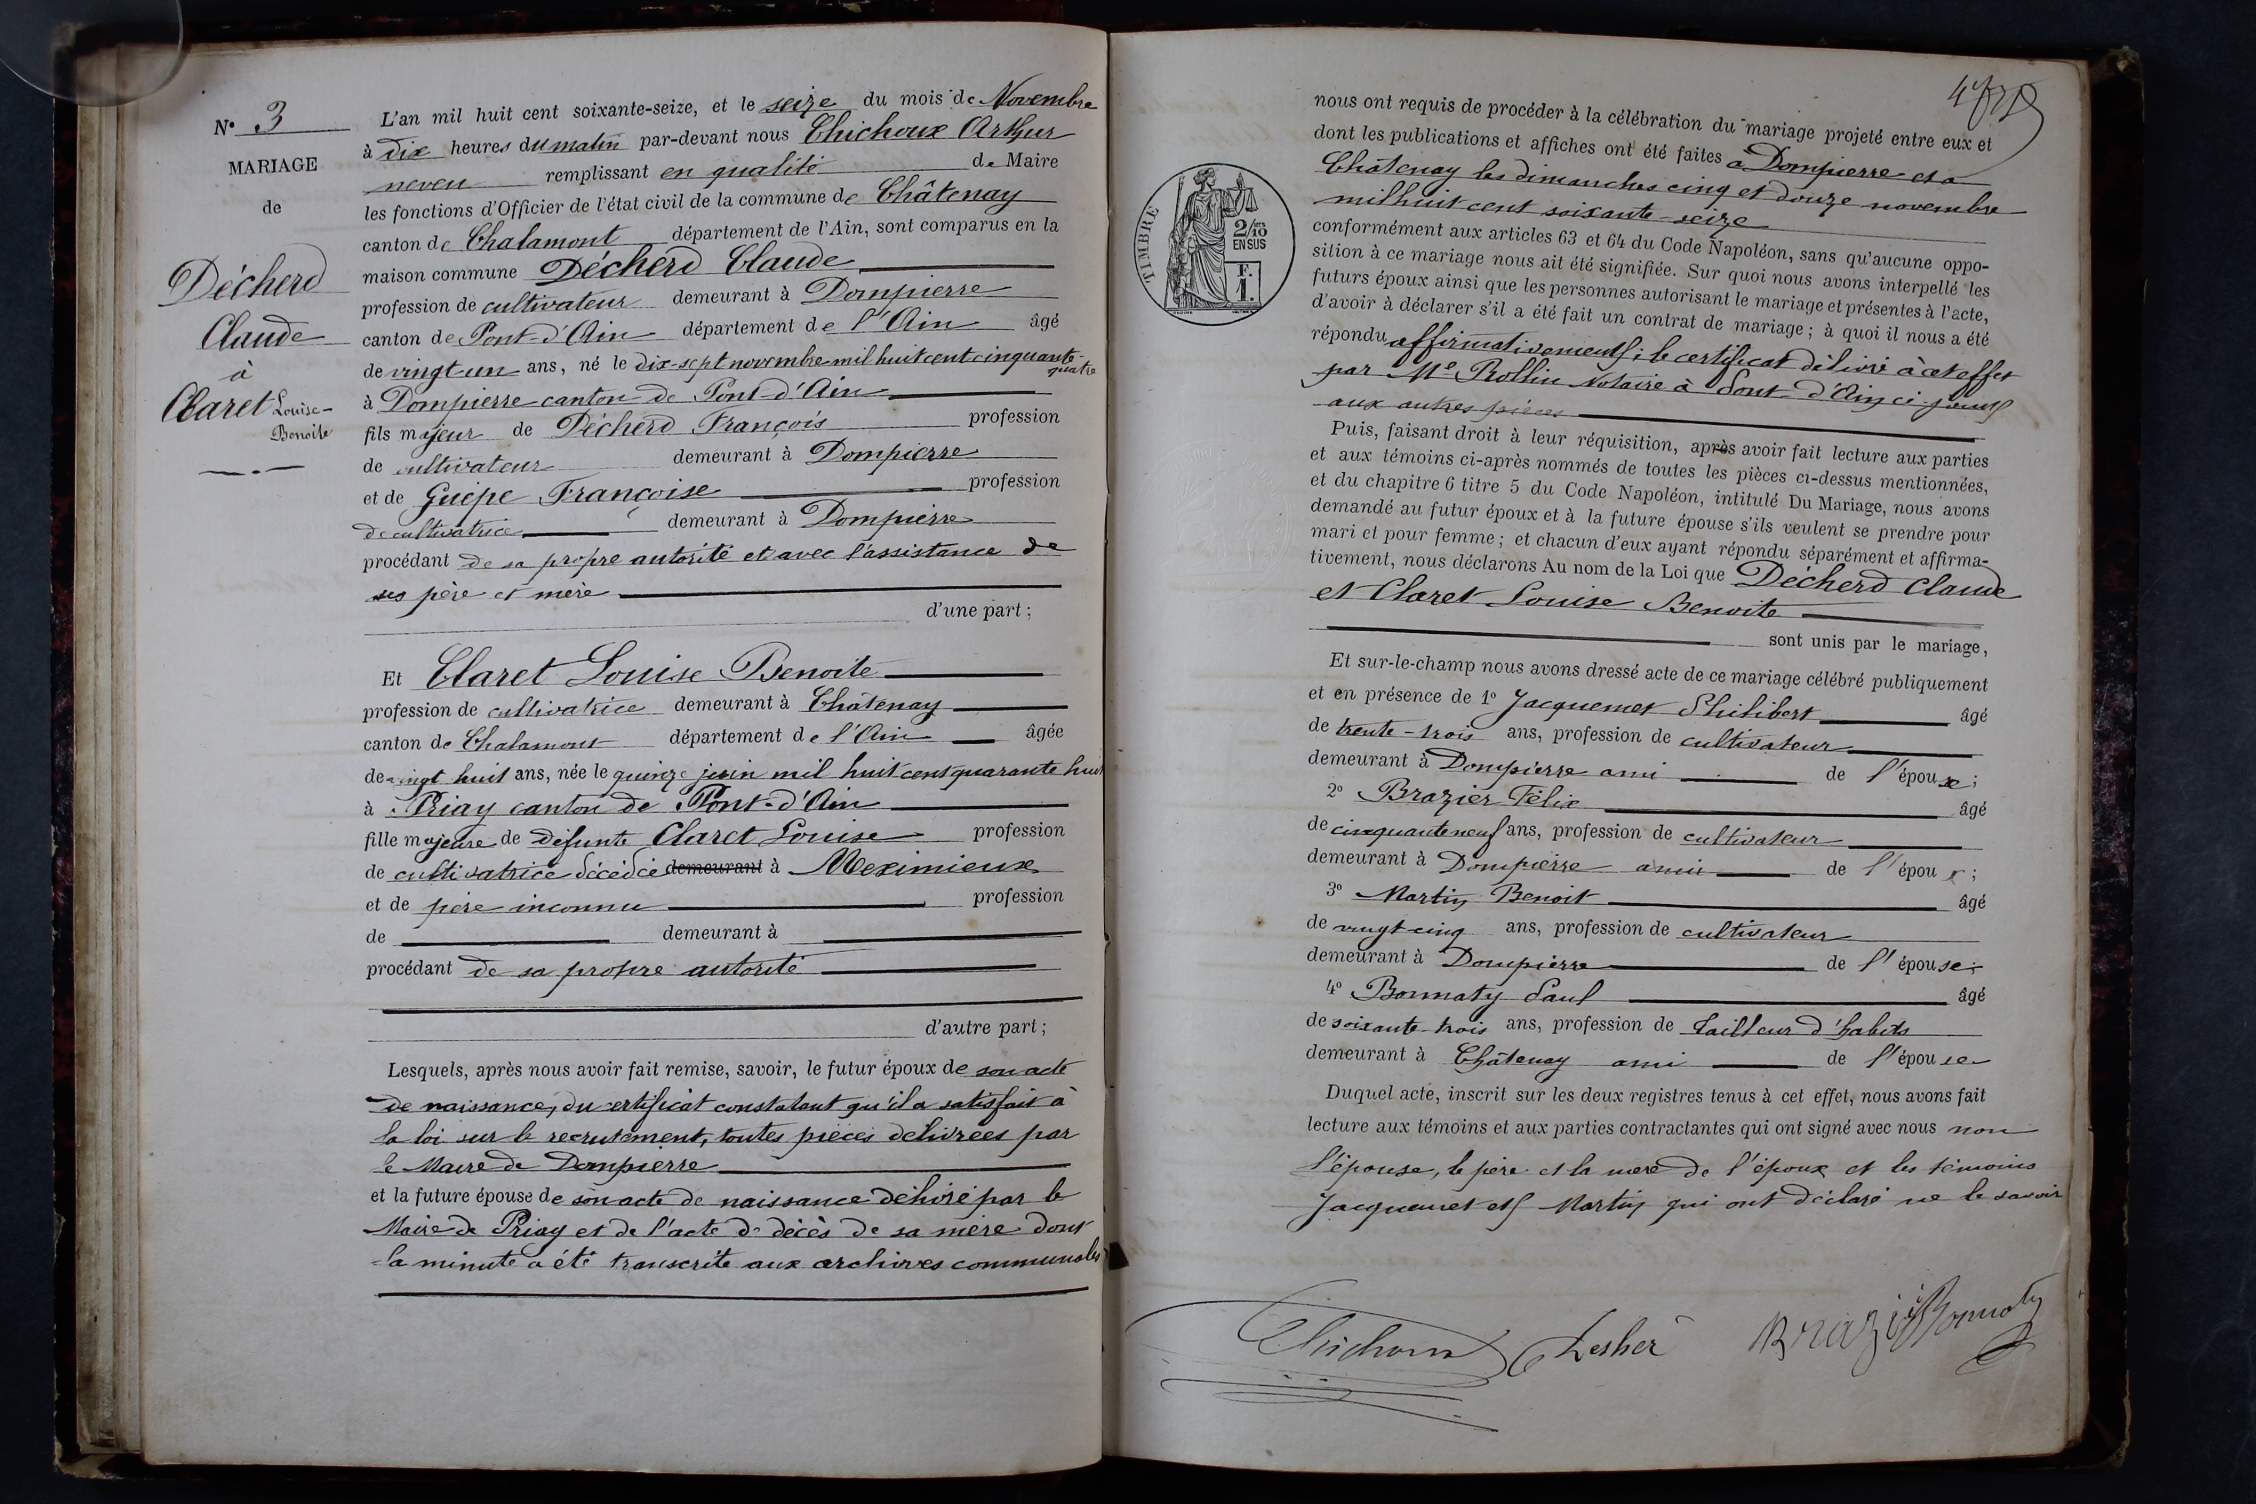 N° 3
MARIAGE
de
Décherd
Claude
à
Claret Louise-
Benoite
L'an mil huit cent soixante-seize, et le seize du mois de Novembre
à dix heures du matin par-devant nous Chichoux Arthur
neveu remplissant en qualité de Maire
les fonctions d'Officier de l'état civil de la commune de Châtenay
canton de Chalamont département de l'Ain, sont comparus en la
maison commune Décherd Claude
profession de cultivateur demeurant à Dompierre
canton de Pont-d'Ain département de l'Ain âgé
de vingt un ans, né le dix-sept novembre mil huit cent cinquante-
quatre
à Dompierre canton de Pont-d'Ain
fils majeur de Décherd François profession
de cultivateur demeurant à Dompierre
et de Guépe Françoise profession
de cultivatrice demeurant à Dompierre
procédant de sa propre autorité et avec l'assistance de
ses père et mère
d'une part;
Et Claret Louise Benoite
profession de cultivatrice demeurant à Châtenay
canton de Chalamont département de l'Ain âgée
de vingt huit ans, née le quinze juin mil huit cent quarante huit
à Priay canton de Pont-d'Ain
fille majeure de défunte Claret Louise profession
de cultivatrice décédée demeurant à Meximieux
et de père inconnu profession
de demeurant à
procédant de sa propre autorité
d'autre part;
Lesquels, après nous avoir fait remise, savoir, le futur époux de son acte
de naissance, du certificat constatant qu'il a satisfait à
la loi sur le recrutement, toutes pièces délivrées par
le Maire de Dompierre
et la future épouse de son acte de naissance délivré par le
Maire de Priay et de l'acte de décès de sa mère dont
la minute a été transcrite aux archives communales
nous ont requis de procéder à la célébration du mariage projeté entre eux et
dont les publications et affiches ont été faites à Dompierre et à
Châtenay les dimanches cinq et douze novembre
mil huit cent soixante-seize
conformément aux articles 63 et 64 du Code Napoléon, sans qu'aucune oppo-
sition à ce mariage nous ait été signifiée. Sur quoi nous avons interpellé les
futurs époux ainsi que les personnes autorisant le mariage et présentes à l'acte,
d'avoir à déclarer s'il a été fait un contrat de mariage; à quoi il nous a été
répondu affirmativement; le certificat délivré à cet effet
par Me Rollin Notaire à Pont-d'Ain ci-joint
aux autres pièces
TIMBRE
2/10
EN SUS
F.
1.
Puis, faisant droit à leur réquisition, après avoir fait lecture aux parties
et aux témoins ci-après nommés de toutes les pièces ci-dessus mentionnées,
et du chapitre 6 titre 5 du Code Napoléon, intitulé Du Mariage, nous avons
demandé au futur époux et à la future épouse s'ils veulent se prendre pour
mari et pour femme; et chacun d'eux ayant répondu séparément et affirma-
tivement, nous déclarons Au nom de la Loi que Décherd Claude
et Claret Louise Benoite
sont unis par le mariage,
Et sur-le-champ nous avons dressé acte de ce mariage célébré publiquement
et en présence de 1° Jacquemet Philibert âgé
de trente-trois ans, profession de cultivateur
demeurant à Dompierre ami de l'épouse;
2° Brazier Félix âgé
de cinquante neuf ans, profession de cultivateur
demeurant à Dompierre ami de l'époux;
3° Martin Benoit âgé
de vingt-cinq ans, profession de cultivateur
demeurant à Dompierre de l'épouse;
4° Bonnaty Paul âgé
de soixante-trois ans, profession de tailleur d'habits
demeurant à Châtenay ami de l'épouse
Duquel acte, inscrit sur les deux registres tenus à cet effet, nous avons fait
lecture aux témoins et aux parties contractantes qui ont signé avec nous non
l'épouse, le père et la mère de l'époux et les témoins
Jacquemet et Martin qui ont déclaré ne le savoir
Chichoux Desher Brazié Bonnaty